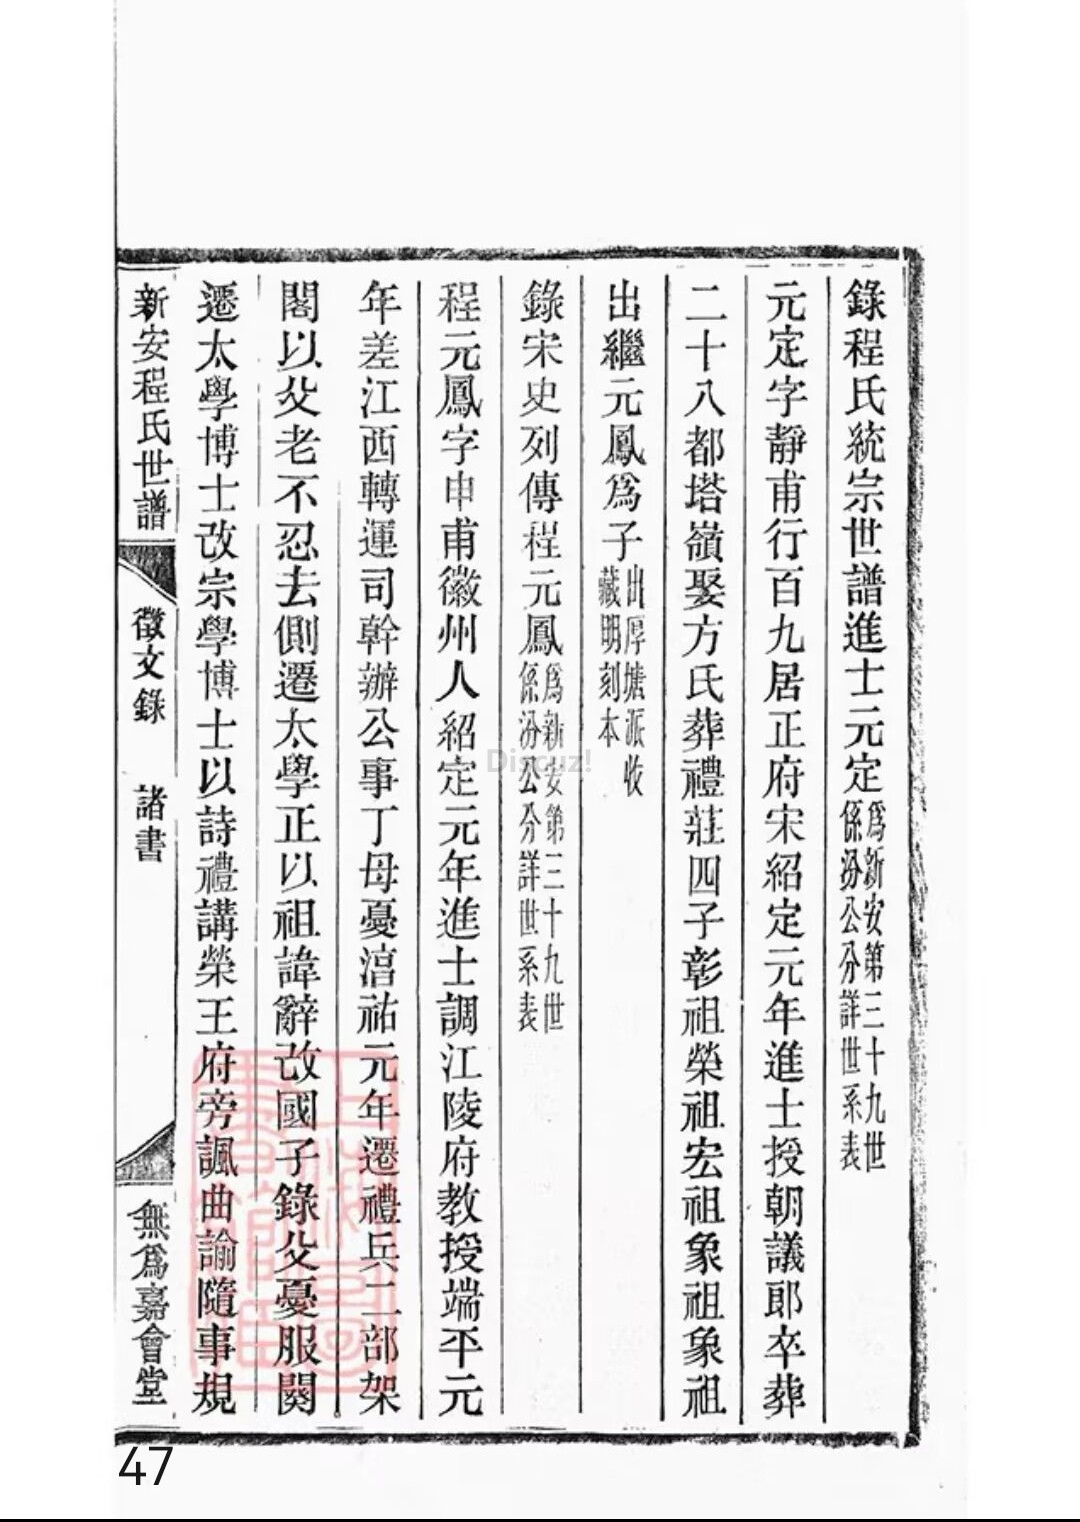 錄程氏統宗世譜進士元定爲新安第三十九世係汾公分詳世系表
元定字靜甫行百九居正府宋紹定元年進士授朝議郎卒葬
二十八都塔嶺娶方氏葬禮莊四子彰祖榮祖宏祖象祖象祖
出繼元鳳爲子出厚塘派收藏明刻本
錄宋史列傳程元鳳爲新安第三十九世係汾公分詳世系表
程元鳳字申甫徽州人紹定元年進士調江陵府教授端平元
年差江西轉運司幹辦公事丁母憂淯祐元年遷禮兵二部架
閣以父老不忍去側遷太學正以祖諱辭改國子錄父憂服闋
遷太學博士改宗學博士以詩禮講榮王府旁諷曲諭隨事規
新安程氏世譜
徵文錄 諸書
無爲嘉會堂
上海圖書館藏
Discuz!
47